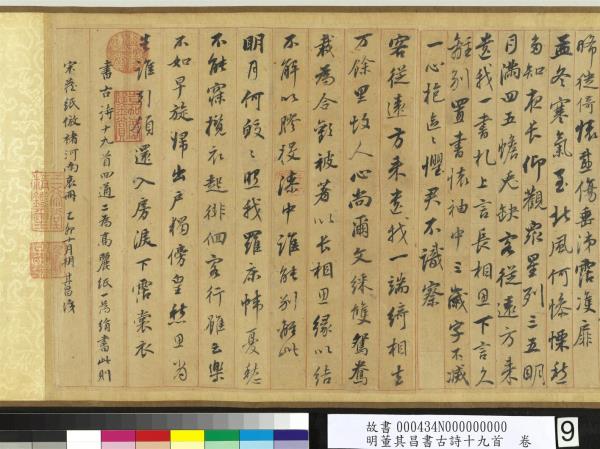 晞徙倚懷感傷垂涕霑雙扉
孟冬寒氣至北風何慘慄愁
多知夜長仰觀眾星列三五明
月滿四五蟾兔缺客從遠方來
遺我一書札上言長相思下言久
離別置書懷袖中三歲字不滅
一心抱區〻懼君不識察
客從遠方來遺我一端綺相去
万餘里故人心尚爾文綵雙鴛鴦
裁為合歡被著以長相思緣以結
不解以膠投漆中誰能別離此
明月何皎〻照我羅床幃憂愁
不能寐攬衣起徘徊客行雖云樂
不如早旋歸出戶獨傍皇愁思當
告誰引領還入房淚下霑裳衣
書古詩十九首四通二為高麗紙一為絹書此則
宋箋紙倣褚河南哀冊 乙卯十月朔 其昌識
故書 000434N000000000
明董其昌書古詩十九首 卷
9